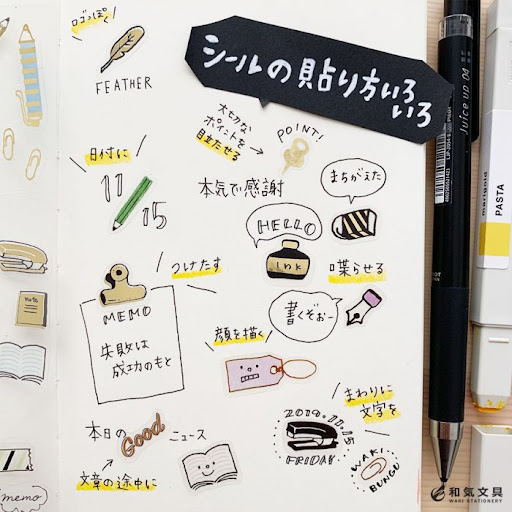 シールの貼り方いろ
いろ
ロゴっぽく
FEATHER
大切な
ポイントを
目立たせる
POINT!
日付に
11
15
本気で感謝
まちがえた
HELLO
Ink
喋らせる
つけたす
MEMO
失敗は
成功のもと
書くぞぉー
顔を描く
まわりに
文字を
本日の Good ニュース
文章の途中に
2019.11.15
FRIDAY
WAKI
BUNGU
Note
memo
Juice up 04
PILOT
marigold
PASTA
和気文具
WAKI STATIONERY